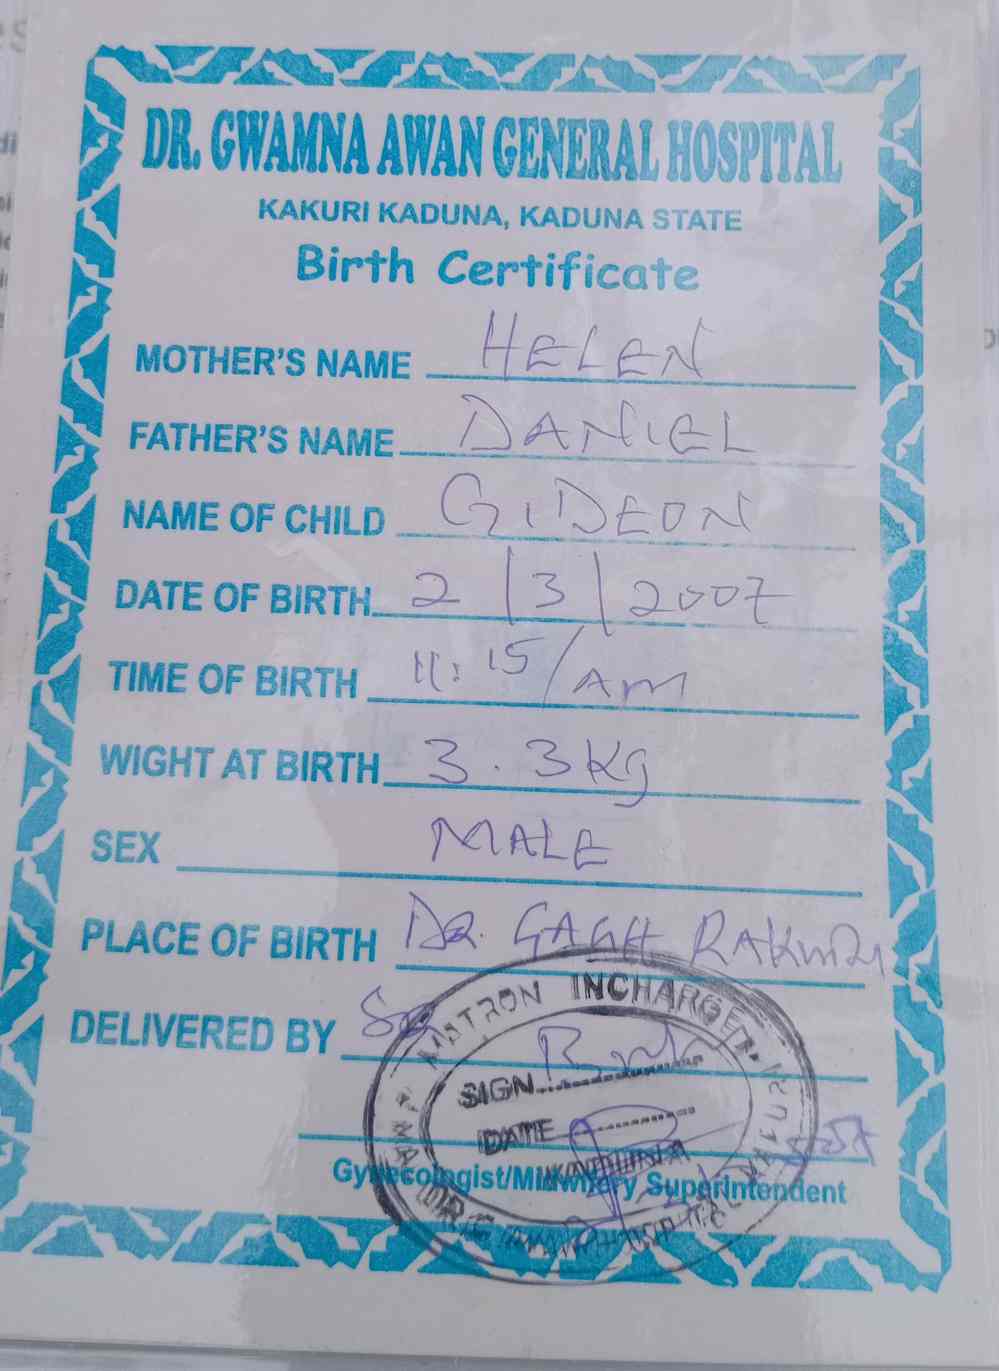 DR. GWAMNA AWAN GENERAL HOSPITAL
KAKURI KADUNA, KADUNA STATE
Birth Certificate
MOTHER'S NAME HELEN
FATHER'S NAME DANIEL
NAME OF CHILD GIDEON
DATE OF BIRTH 2/3/2007
TIME OF BIRTH 11:15/AM
WIGHT AT BIRTH 3.3kg
SEX MALE
PLACE OF BIRTH DR. GAGH
DELIVERED BY
MATRON INCHARGE
SIGN
DATE
KADUNA
Gynecologist/Midwifery Superintendent